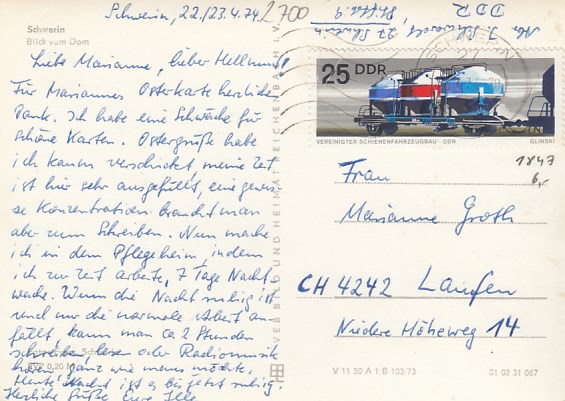 Schwerin, 22./23.4.74
2700
DDR
Schwerin
Blick vom Dom
Liebe Marianne, lieber Hellmut!
Für Mariannes Osterkarte herzlichen
Dank. Ich habe eine Schwäche für
schöne Karten. Ostergrüße habe
ich kaum verschickt, meine Zeit
ist hier sehr ausgefüllt, eine gewis-
se Konzentration braucht man
aber zum Schreiben. Nun mache
ich in dem Pflegeheim, indem
ich zur Zeit arbeite, 7 Tage Nacht-
wache. Wenn die Nacht ruhig ist
und nur die normale Arbeit an-
fällt, kann man ca 2 Stunden
schreiben, lesen oder Radiomusik
hören, ganz wie man möchte.
Heute Nacht ist es bis jetzt ruhig.
Herzliche Grüße Eure Ille
25 DDR
VEREINIGTER SCHIENENFAHRZEUGBAU · DDR
GLINSKI
1847
6,-
Frau
Marianne Groth
CH 4242 Laufen
Niedere Höheweg 14
V 11 50 A 1/B 103/73
01 02 31 067